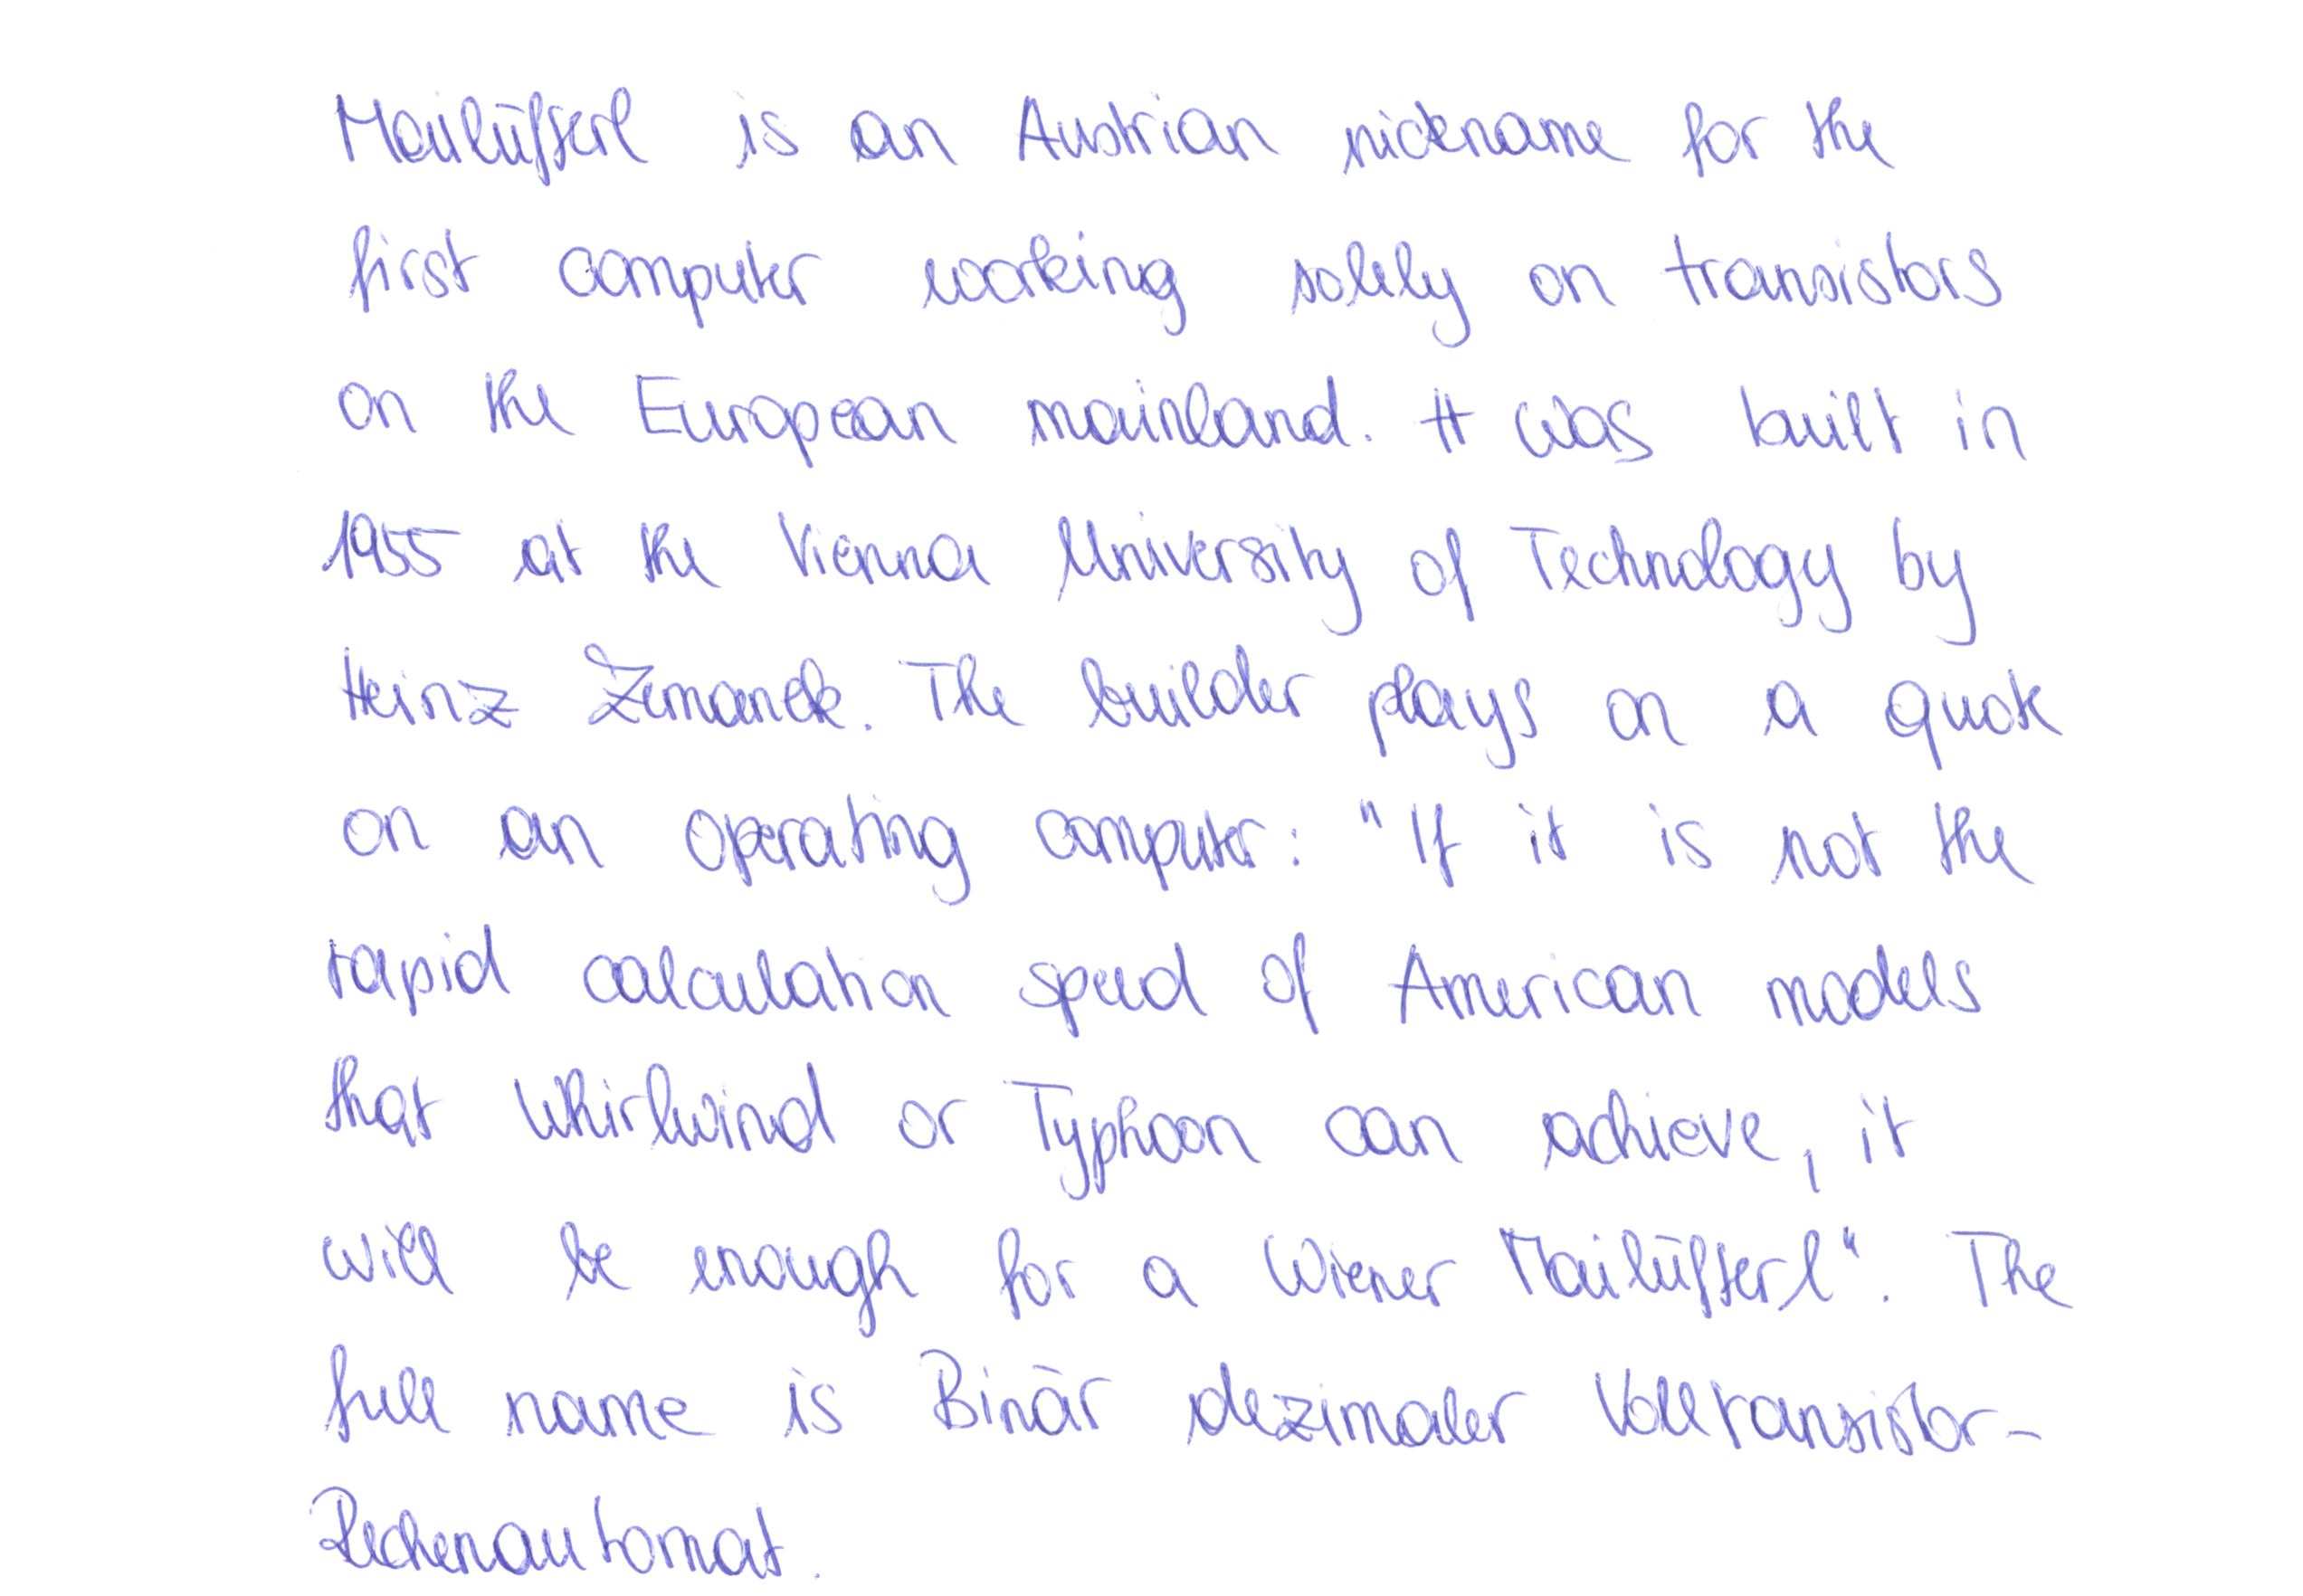 Mailüfterl is an Austrian nickname for the
first computer working solely on transistors
on the European mainland. It was built in
1955 at the Vienna University of Technology by
Heinz Zemanek. The builder plays on a quote
on an operating computer: "If it is not the
rapid calculation speed of American models
that Whirlwind or Typhoon can achieve, it
will be enough for a Wiener Mailüfterl". The
full name is Binär dezimaler Volltransistor-
Rechenautomat.